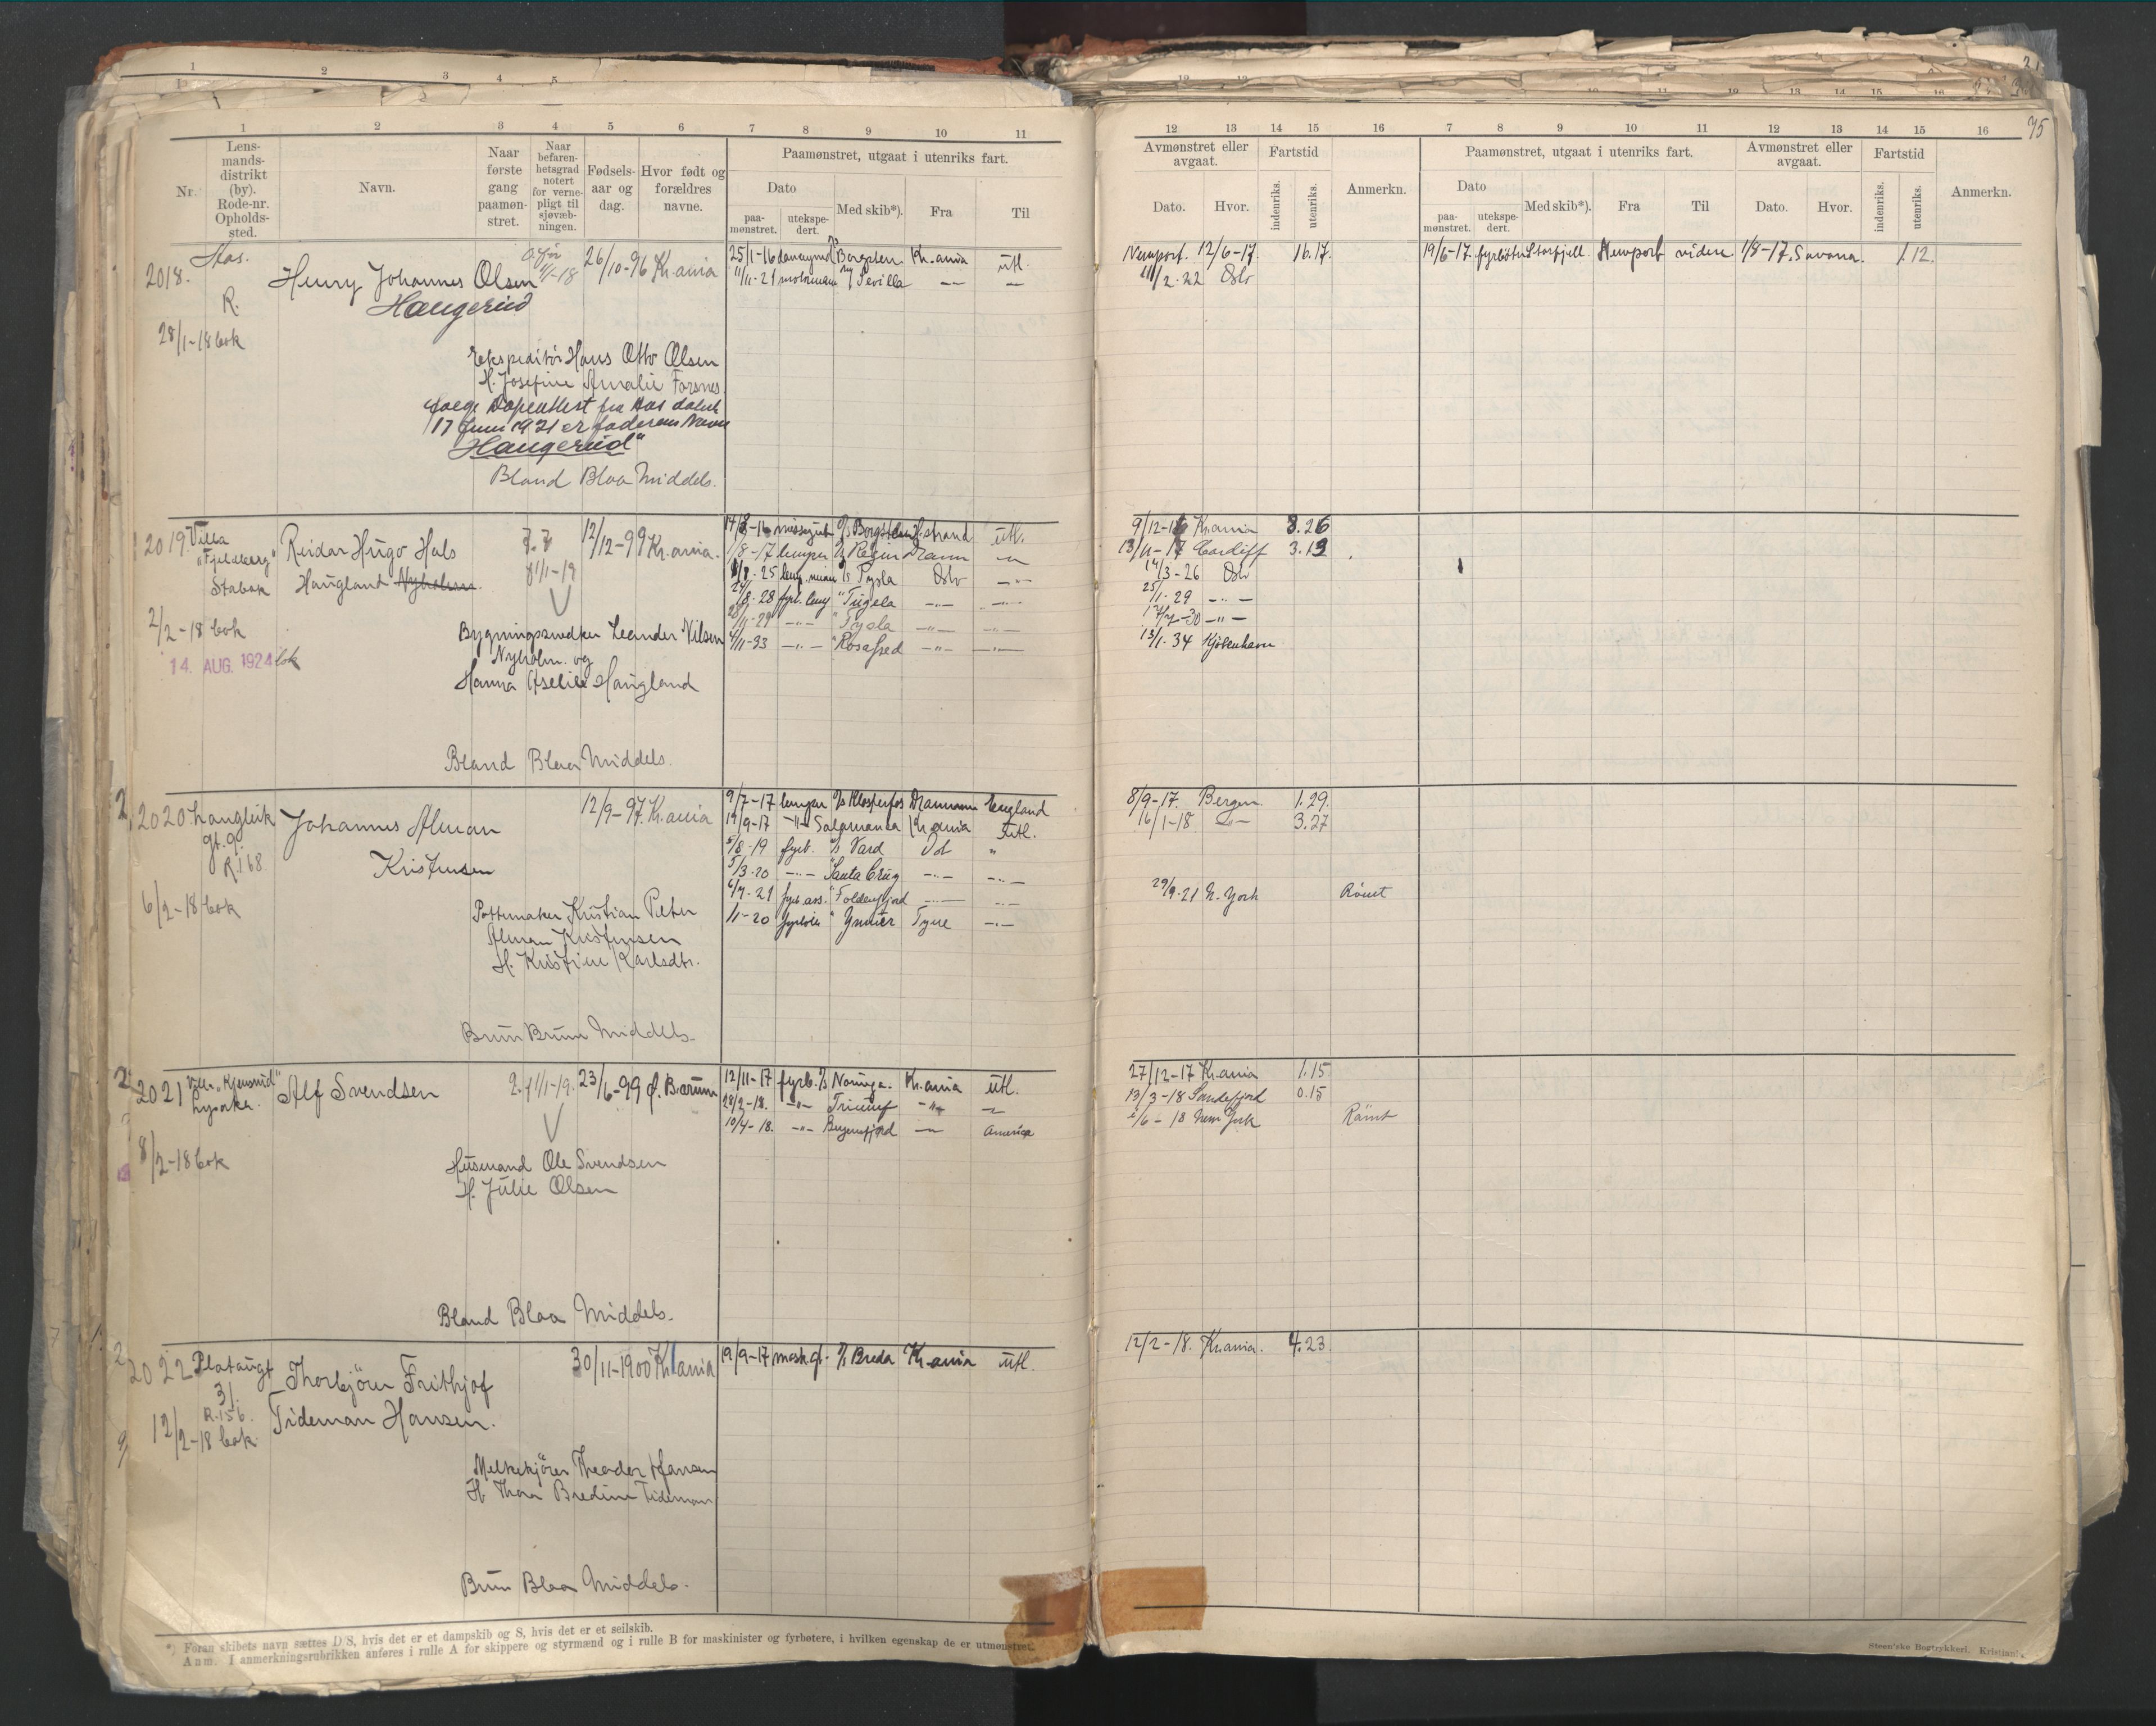 75
1 2 3 4 5 6 7 8 9 10 11
Nr.
Lens-
mands-
distrikt
(by).
Rode-nr.
Opholds-
sted.
Navn.
Naar
første
gang
paamøn-
stret.
Naar
befaren-
hetsgrad
notert
for verne-
pligt til
sjøvæb-
ningen.
Fødsels-
aar og
dag.
Hvor født og
forældres
navne.
Paamønstret, utgaat i utenriks fart.
Dato
paa-
mønstret.
utekspe-
dert.
Med skib*).
Fra
Til
12 13 14 15 16 7 8 9 10 11 12 13 14 15 16
Avmønstret eller
avgaat.
Dato. Hvor.
Fartstid
indenriks.
utenriks.
Anmerkn.
Paamønstret, utgaat i utenriks fart.
Dato
paa-
mønstret.
utekspe-
dert.
Med skib*).
Fra
Til
Avmønstret eller
avgaat.
Dato. Hvor.
Fartstid
indenriks.
utenriks.
Anmerkn.
2018.
R.
28/1-18 bok
Henry Johannes Olsen
Haugerud
26/10-96 Kr.ania
25/1-16 Borgsten Kr.ania utl.
11/11-21 motormann Sevilla
Newport. 12/6-17. 16.17.
11/2-22 Oslo
19/6-17. fyrbøter Storfjell Newport videre 1/8-17. Savana. 1.12.
Ekspeditør Hans Otto Olsen
H. Josefine Amalie Forsnes
17 Juni 1921 er faderens Navn
Haugerud"
Bland Blaa Middels.
2019.
Villa
"Fjeldberg"
Stabæk
2/2-18 bok
14. AUG. 1924 bok
Reidar Hugo Hals
Haugland
12/12-99 Kr.ania.
Bygningssnedker Leander Nilsen
Nyholm. og
Hanna Haugland
-16 Borgsten H.strand utl.
1/8-17 lemper Dramn
-25 Tysla Oslo
-28 fyrb. "Tugela
-29 "Tysla
4/11-33 "Rosafred
9/12-16 Kr.ania 8.26
13/11-17 Cardiff 3.13
14/3-26 Oslo
25/1-29
-30
13/1-34 Kjøbenhavn
Bland Blaa Middels.
2020
Langleik
gt. 9.
R.168
6/2-18 bok
Johannes Alman
Kristensen
12/9-97. Kr.ania
Pottemaker Kristian Peter
Alman Kristensen
H. Kristine Karlsdtr.
9/7-17 lemper Klosterfos Drammen England
19/9-17 Salamanca Kr.ania utl.
5/8-19 fyrb. Vard
5/3-20 Santa Cruz
6/7-21 fyrb.ass. "Foldenfjord
1/11-20 fyrbøter Tyne
8/9-17. Bergen. 1.29.
16/1-18 3.27
29/9-21 N. York Rømt
Brun Brun Middels.
2021
Villa "Kjensrud"
Lysaker.
8/2-18 bok
Alf Svendsen
1/1-19. 23/6-99 Ø. Bærum
Husmand Ole Svendsen
H. Julie Olsen
12/11-17 fyrb. Noruega. Kr.ania utl.
28/2-18. Triumf
10/4-18. Bergensfjord America
27/12-17 Kr.ania 1.15
13/3-18 Sandefjord 0.15
2/6-18 New York Rømt
Bland Blaa Middels.
2022
Plataugt
31.
R.156.
12/2-18 bok
Thorbjörn Frithjof
Tideman Hansen.
30/11-1900 Kr.ania
Melkekjörer Theodor Hansen
H. Thora Bredine Tideman
19/9-17 mask.g. Breda Kr.ania utl.
12/2-18. Kr.ania. 4.23.
Brun Blaa Middels.
*) Foran skibets navn sættes D/S, hvis det er et dampskib og S, hvis det er et seilskib.
Anm. I anmerkningsrubrikken anføres i rulle A for skippere og styrmænd og i rulle B for maskinister og fyrbøtere, i hvilken egenskap de er utmønstret.
Steen'ske Bogtrykkeri. Kristiania.